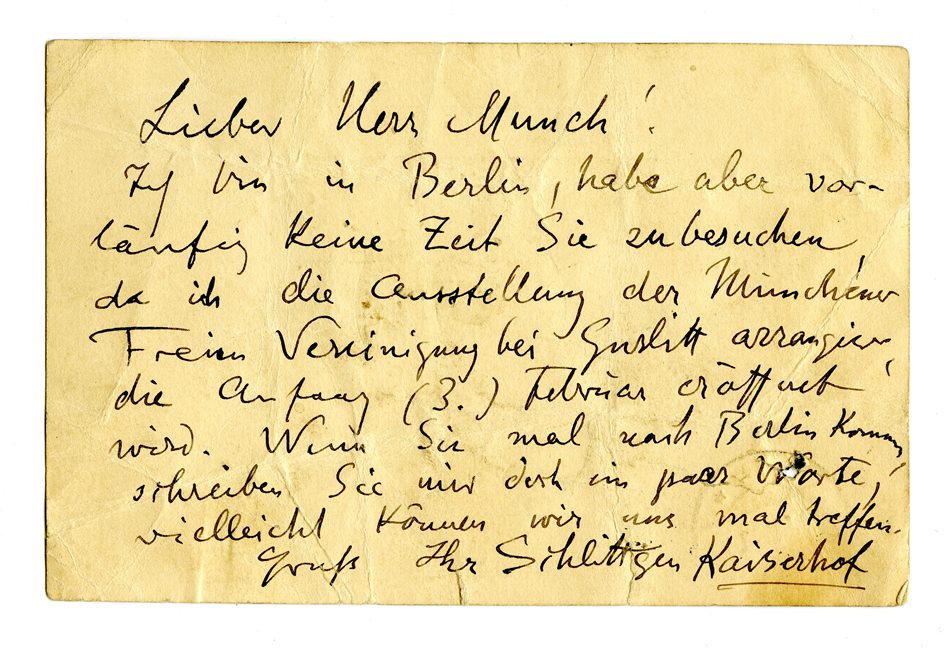 Lieber Herr Munch!
Ich bin in Berlin, habe aber vor-
läufig keine Zeit Sie zu besuchen,
da ich die Ausstellung der Münchener
Freien Vereinigung bei Gurlitt arrangiere,
die Anfang (3.) Februar eröffnet
wird. Wenn Sie mal nach Berlin kommen,
schreiben Sie mir doch ein paar Worte,
vielleicht können wir uns mal treffen.
Gruß Ihr Schlittgen Kaiserhof